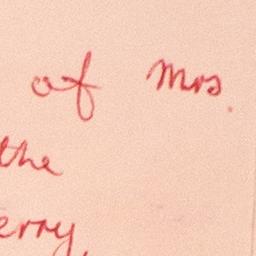 of Mrs.
the
erry,